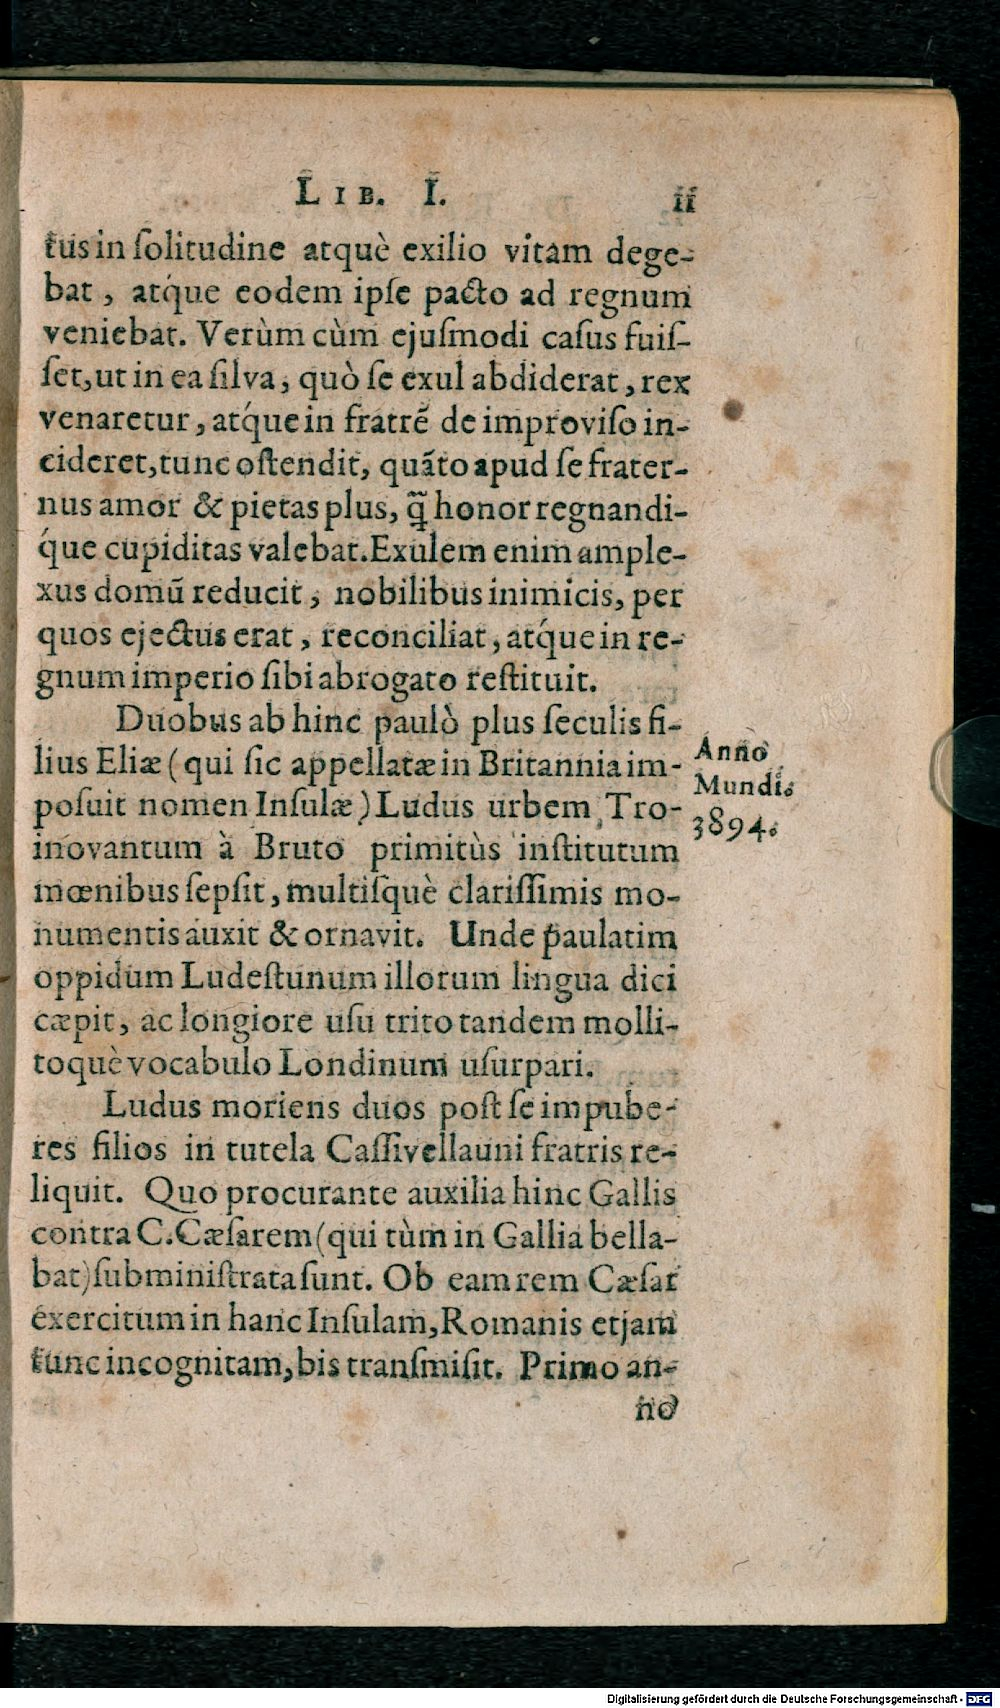 LIB. I. 11
tus in ſolitudine atquè exilio vitam dege-
bat, atq́ue eodem ipſe pacto ad regnum
veniebat. Verùm cùm ejuſmodi caſus fuiſ-
ſet, ut in ea ſilva, quò ſe exul abdiderat, rex
venaretur, atq́ue in fratrẽ de improviſo in-
cideret, tunc oſtendit, quãto apud ſe frater-
nus amor & pietas plus, q̃ honor regnandi-
q́ue cupiditas valebat. Exulem enim ample-
xus domũ reducit, nobilibus inimicis, per
quos ejectus erat, reconciliat, atq́ue in re-
gnum imperio ſibi abrogato reſtituit.
Duobus ab hinc paulò plus ſeculis fi-
lius Eliæ (qui ſic appellatæ in Britannia im-
poſuit nomen Inſulæ) Ludus urbem Tro-
inovantum à Bruto primitùs inſtitutum
mœnibus ſepſit, multiſquè clariſſimis mo-
numentis auxit & ornavit. Unde paulatim
oppidum Ludeſtunum illorum lingua dici
cæpit, ac longiore uſu trito tandem molli-
toquè vocabulo Londinum uſurpari.
Anno
Mundi.
3894.
Ludus moriens duos poſt ſe impube-
res filios in tutela Caſſivellauni fratris re-
liquit. Quo procurante auxilia hinc Gallis
contra C. Cæſarem (qui tùm in Gallia bella-
bat) ſubminiſtrata ſunt. Ob eam rem Cæſar
exercitum in hanc Inſulam, Romanis etjam
tunc incognitam, bis tranſmiſit. Primo an-
no
Digitalisierung gefördert durch die Deutsche Forschungsgemeinschaft - DFG